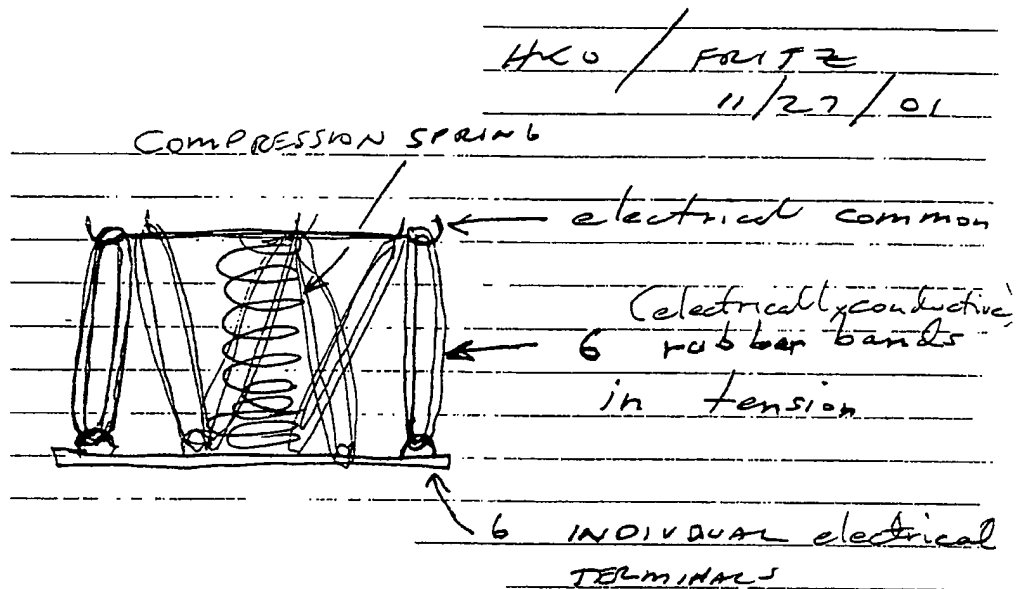 HKO / FRITZ
11/27/01
COMPRESSION SPRING
electrical common
(electrically conductive)
6 rubber bands
in tension
6 INDIVIDUAL electrical
TERMINALS